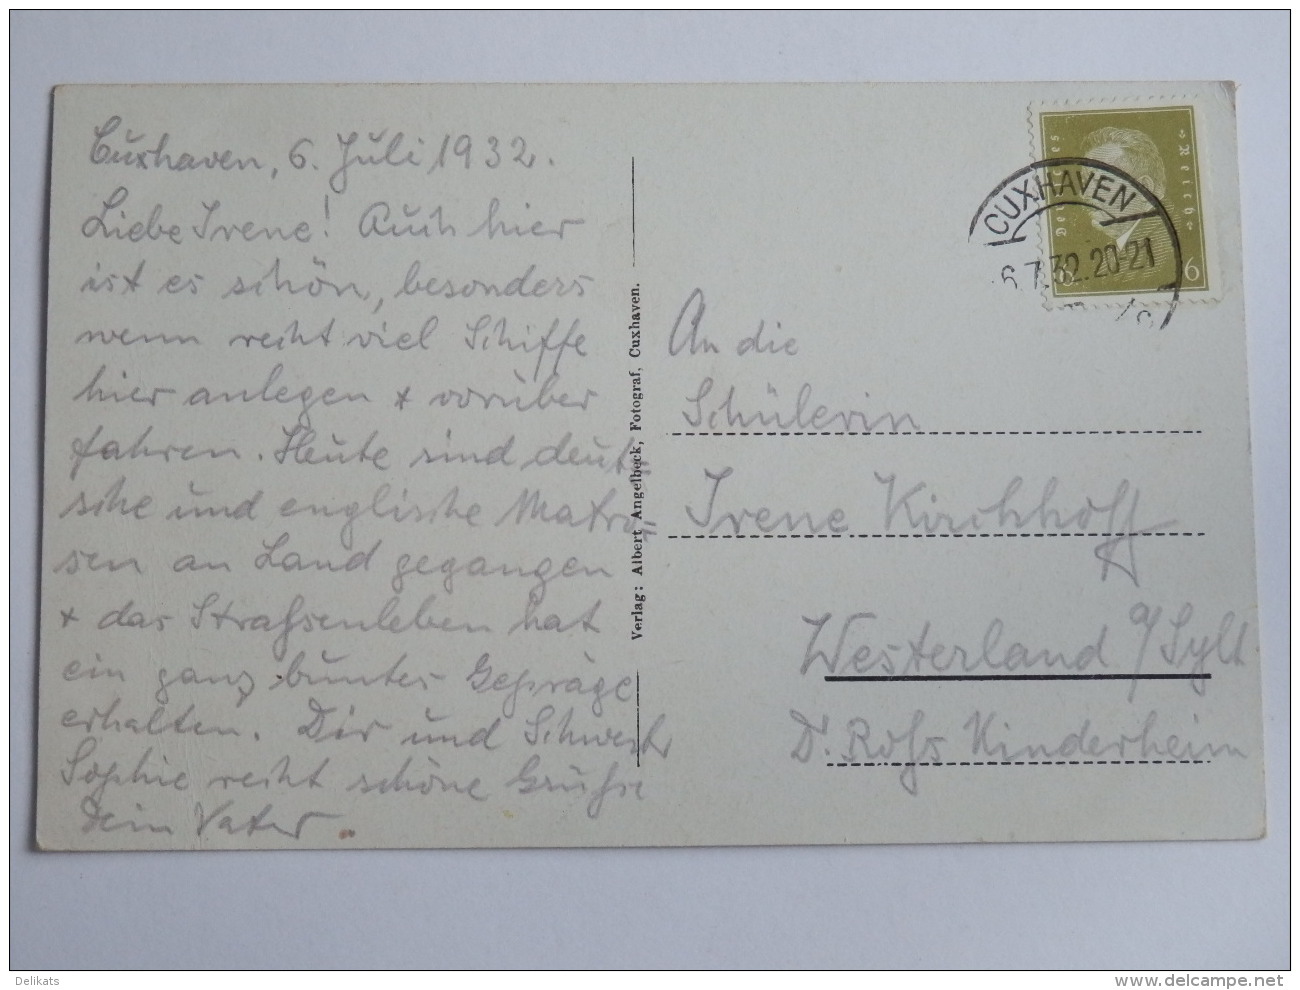 Cuxhaven, 6. Juli 1932.
Liebe Irene! Auch hier
ist es schön, besonders
wenn recht viel Schiffe
hier anlegen + vorüber
fahren. Heute sind deut=
sche und englische Matro=
sen an Land gegangen
+ das Straßenleben hat
ein ganz buntes Gepräge
erhalten. Dir und Schwester
Sophie recht schöne Grüße
Dein Vater.
Verlag: Albert Angelbeck, Fotograf, Cuxhaven.
Deutsches Reich
6
CUXHAVEN
6.7.32.20-21
An die
Schülerin
Irene Kirchhoff
Westerland a/Sylt
Dr. Roß Kinderheim
Delikats
www.delcampe.net